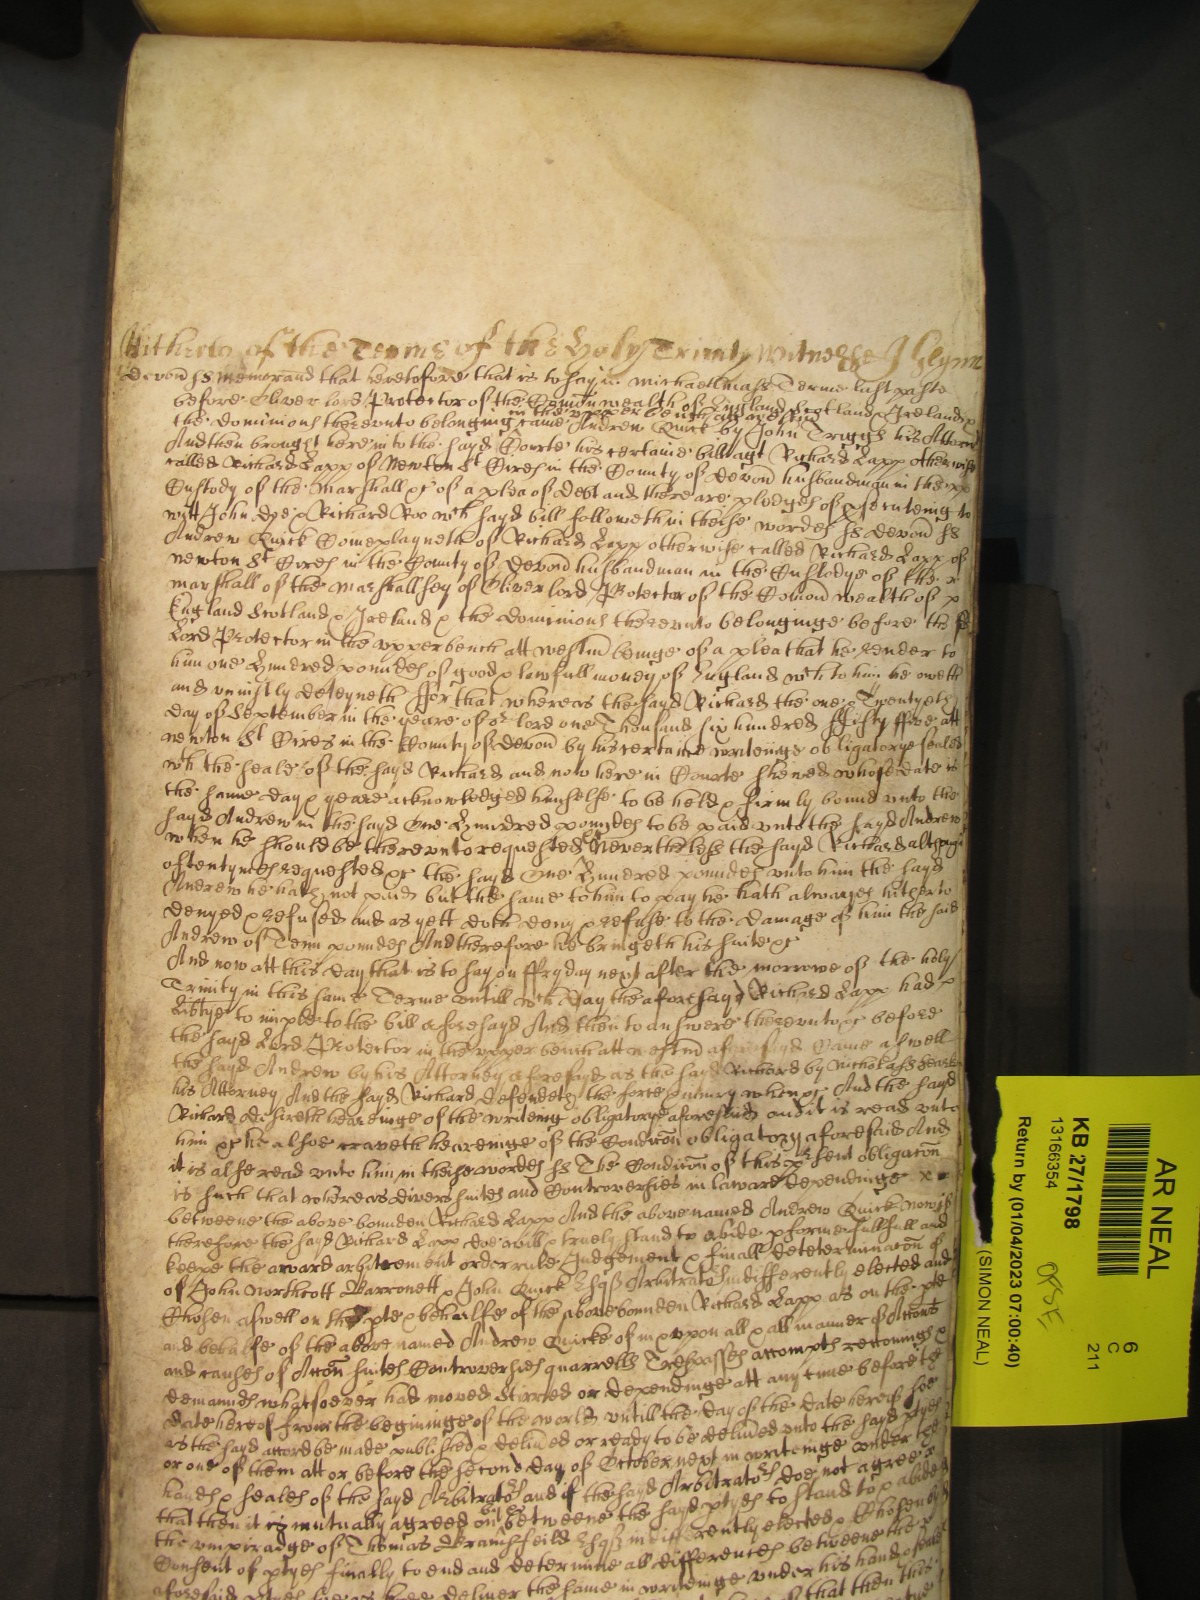 Hitherto of the Terme of the Holy Trinity Witnesse J Glynn
Devon ss Memorand that heretofore that is to say in Michaellmass Terme last paste
before Oliver lord Protector of the Comon wealth of England Scotland & Ireland &
in the upper bench att westm
the dominions thereunto belonging came Andrew Quick by John Triggs his Attorn
And then brought here into the sayd Courte his certaine bill agt Richard Lapp otherwise
called Richard Lapp of Newton St Cires in the County of Devon husbandman in the
Custody of the Marshall &c of a plea of Debt and there are pledges of prsecuteing to
witt John Doe & Richard Roo wch sayd bill followeth in theise wordes ss Devon ss
Andrew Quick Complayneth of Richard Lapp otherwise called Richard Lapp of
Newton St Cires in the County of Devon husbandman in the Custodye of the
Marshall of the Marshallsey of Oliver lord Protector of the Comon wealth of
England Scotland & Ireland & the dominions thereunto belonginge before the sd
Lord Protector in the upper bench att westm beinge of a plea that he render to
him one Hundred poundes of good & lawfull money of England wch to him he oweth
and uniustly deteyneth ffor that whereas the sayd Richard the one & Twentyeth
day of September in the yeare of or lord one Thousand six hundred ffifty ffive att
Newton St Cires in the County of Devon by his certaine writeinge obligatorye sealed
wth the seale of the sayd Richard and now here in Courte shewed whose date is
the same day & yeare acknowledged himselfe to be held & firmly bound unto the
sayd Andrew in the sayd One Hundred poundes to be paid unto the sayd Andrew
when he should be thereunto requested Neverthelesse the sayd Richard although
oftentymes requested &c the sayd One Hundred poundes unto him the sayd
Andrew he hath not paid but the same to him to pay he hath alwayes hitherto
denyed & refused and as yett doth deny & refuse to the damage of him the said
Andrew of Tenn poundes And therefore he bringeth his suite &c
And now att this day that is to say on ffryday next after the morrowe of the holy
Trinity in this same Terme untill wch day the aforesayd Richard Lapp had
libtye to imple to the bill aforesayd And then to answere thereunto &c before
the sayd Lord Protector in the upper bench att westm aforesayd Came aswell
the sayd Andrew by his Attorney aforesayd as the sayd Richard by Nicholass
his Attorney And the sayd Richard defendeth the force & iniury when &c And the sayd
Richard desireth heareinge of the writeing obligatorye aforesaid and it is read unto
him &c he alsoe craveth heareinge of the Condicon obligatory aforesaid And
it is alsoe read unto him in theise wordes ss The Condicon of this prsent obligacon
is such that whereas divers suites and Controversies in laware dependinge
betweene the above bounden Richard Lapp And the above named Andrew Quick Now if
therefore the sayd Richard Lapp doe well & truely stand to abide & forme fullfill and
keepe the award arbitrement order rule Judgement & finall determinacon
of John Northcott Barronett & John Quick Esqs Arbitrators indifferently elected and
Chosen aswell on the pte & behalfe of the above bounden Richard Lapp as on the pte
and behalfe of the above named Andrew Quicke of in & uppon all & all manner of Accons
and causes of Accon suites Controversies quarrells Trespasses accompts reconings &
demaunds whatsoever had moved stirred or dependinge att any time before the
date hereof from the begininge of the world untill the day of the date hereof soe
as the sayd award be made published & delived or ready to be delived unto the sayd ptyes
or one of them att or before the second day of October next in writeinge under the
handes & seales of the sayd Arbitrators and if the sayd Arbitrators doe not agree
that then it is mutually agreed on betweene the sayd ptyes to stand to & abide
the umpiradge of Thomas Esqs indifferently elected & Chosen by
Consent of ptyes finally to end and determine all differences betweene the
aforesaid deliver the same in writeinge under his hand & seale
that then this
AR NEAL
6
C
211
KB 27/1798
13166354
Return by (01/04/2023 07:00:40)
(SIMON NEAL)